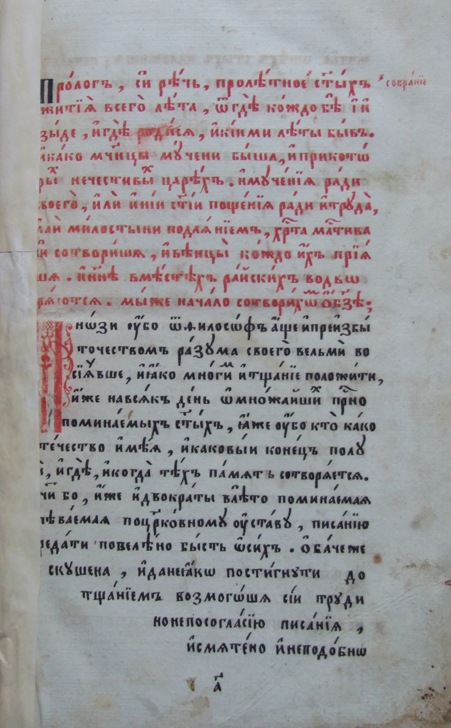 Про́логъ, си́ рѣ́чь, проле́тное ст҃ы́хъ собра́нїе
житїѧ̀ всегѡ̀ лѣ́та, ѿгдѣ̀ ко́ждо бѣ̀ и҆
и҆гдѣ̀ роди́сѧ, и҆кі́ими лѣ́ты бы́въ.
и҆ка́кѡ мч҃нцы му́чени бы́ша, и҆прикотѡ́
нечести́вы царе́хъ. и҆муче́нїѧ ра́ди
и҆лѝ и҆ні́и ст҃і́и поще́нїѧ ра́ди и҆труда̀,
ми́лостыни подаѧ́нїемъ, хрⷭ҇та̀ мⷭ҇тива
сотвори́шѧ, и҆вѣнцы̀ ко́ждо и҆́хъ прїѧ́
шѧ. и҆нн҃ѣ вмѣ́стѣхъ ра́йскихъ водвѡ
рѧ́ютсѧ. мы́же нача́ло сотвори́хѡⷨ ѡ҆бзѣ̀;
но́зи ᲂу҆́бо ѿфилосо́фъ а҆́ще и҆преи́збы
то́чествомъ ра́зума своегѡ̀ вельмѝ во
сїѧ́вше, и҆ꙗ́кѡ мно́ги и҆тща́нїе положи́ти,
и҆́же навсѧ́къ де́нь ѿмно́жайшиⷯ прⷭ҇нѡ
помина́емыхъ ст҃ы́хъ, ꙗ҆́же ᲂу҆́бо кто̀ ка́кѡ
те́чество и҆мѣ́ѧ, и҆какові́и коне́цъ полу
и҆гдѣ̀, и҆когда̀ тѣ́хъ па́мѧть сотворѧ́етсѧ.
бо, и҆́же и҆два́краты влѣ́то помина́емаѧ
пѣва́емаѧ поцр҃ко́вному ᲂу҆ста́ву, писа́нїю
реда́ти повеле́но бы́сть ѡ҆си́хъ. ѻ҆ба́чеже
скуше́на, и҆дане́ꙗкѡ пости́гнути до
тща́нїемъ возмого́шѧ сїѝ труди̂
нонепосогла́сїю писа́нїѧ,
и҆смѧте́но и҆неподо́бнѡ
а҃